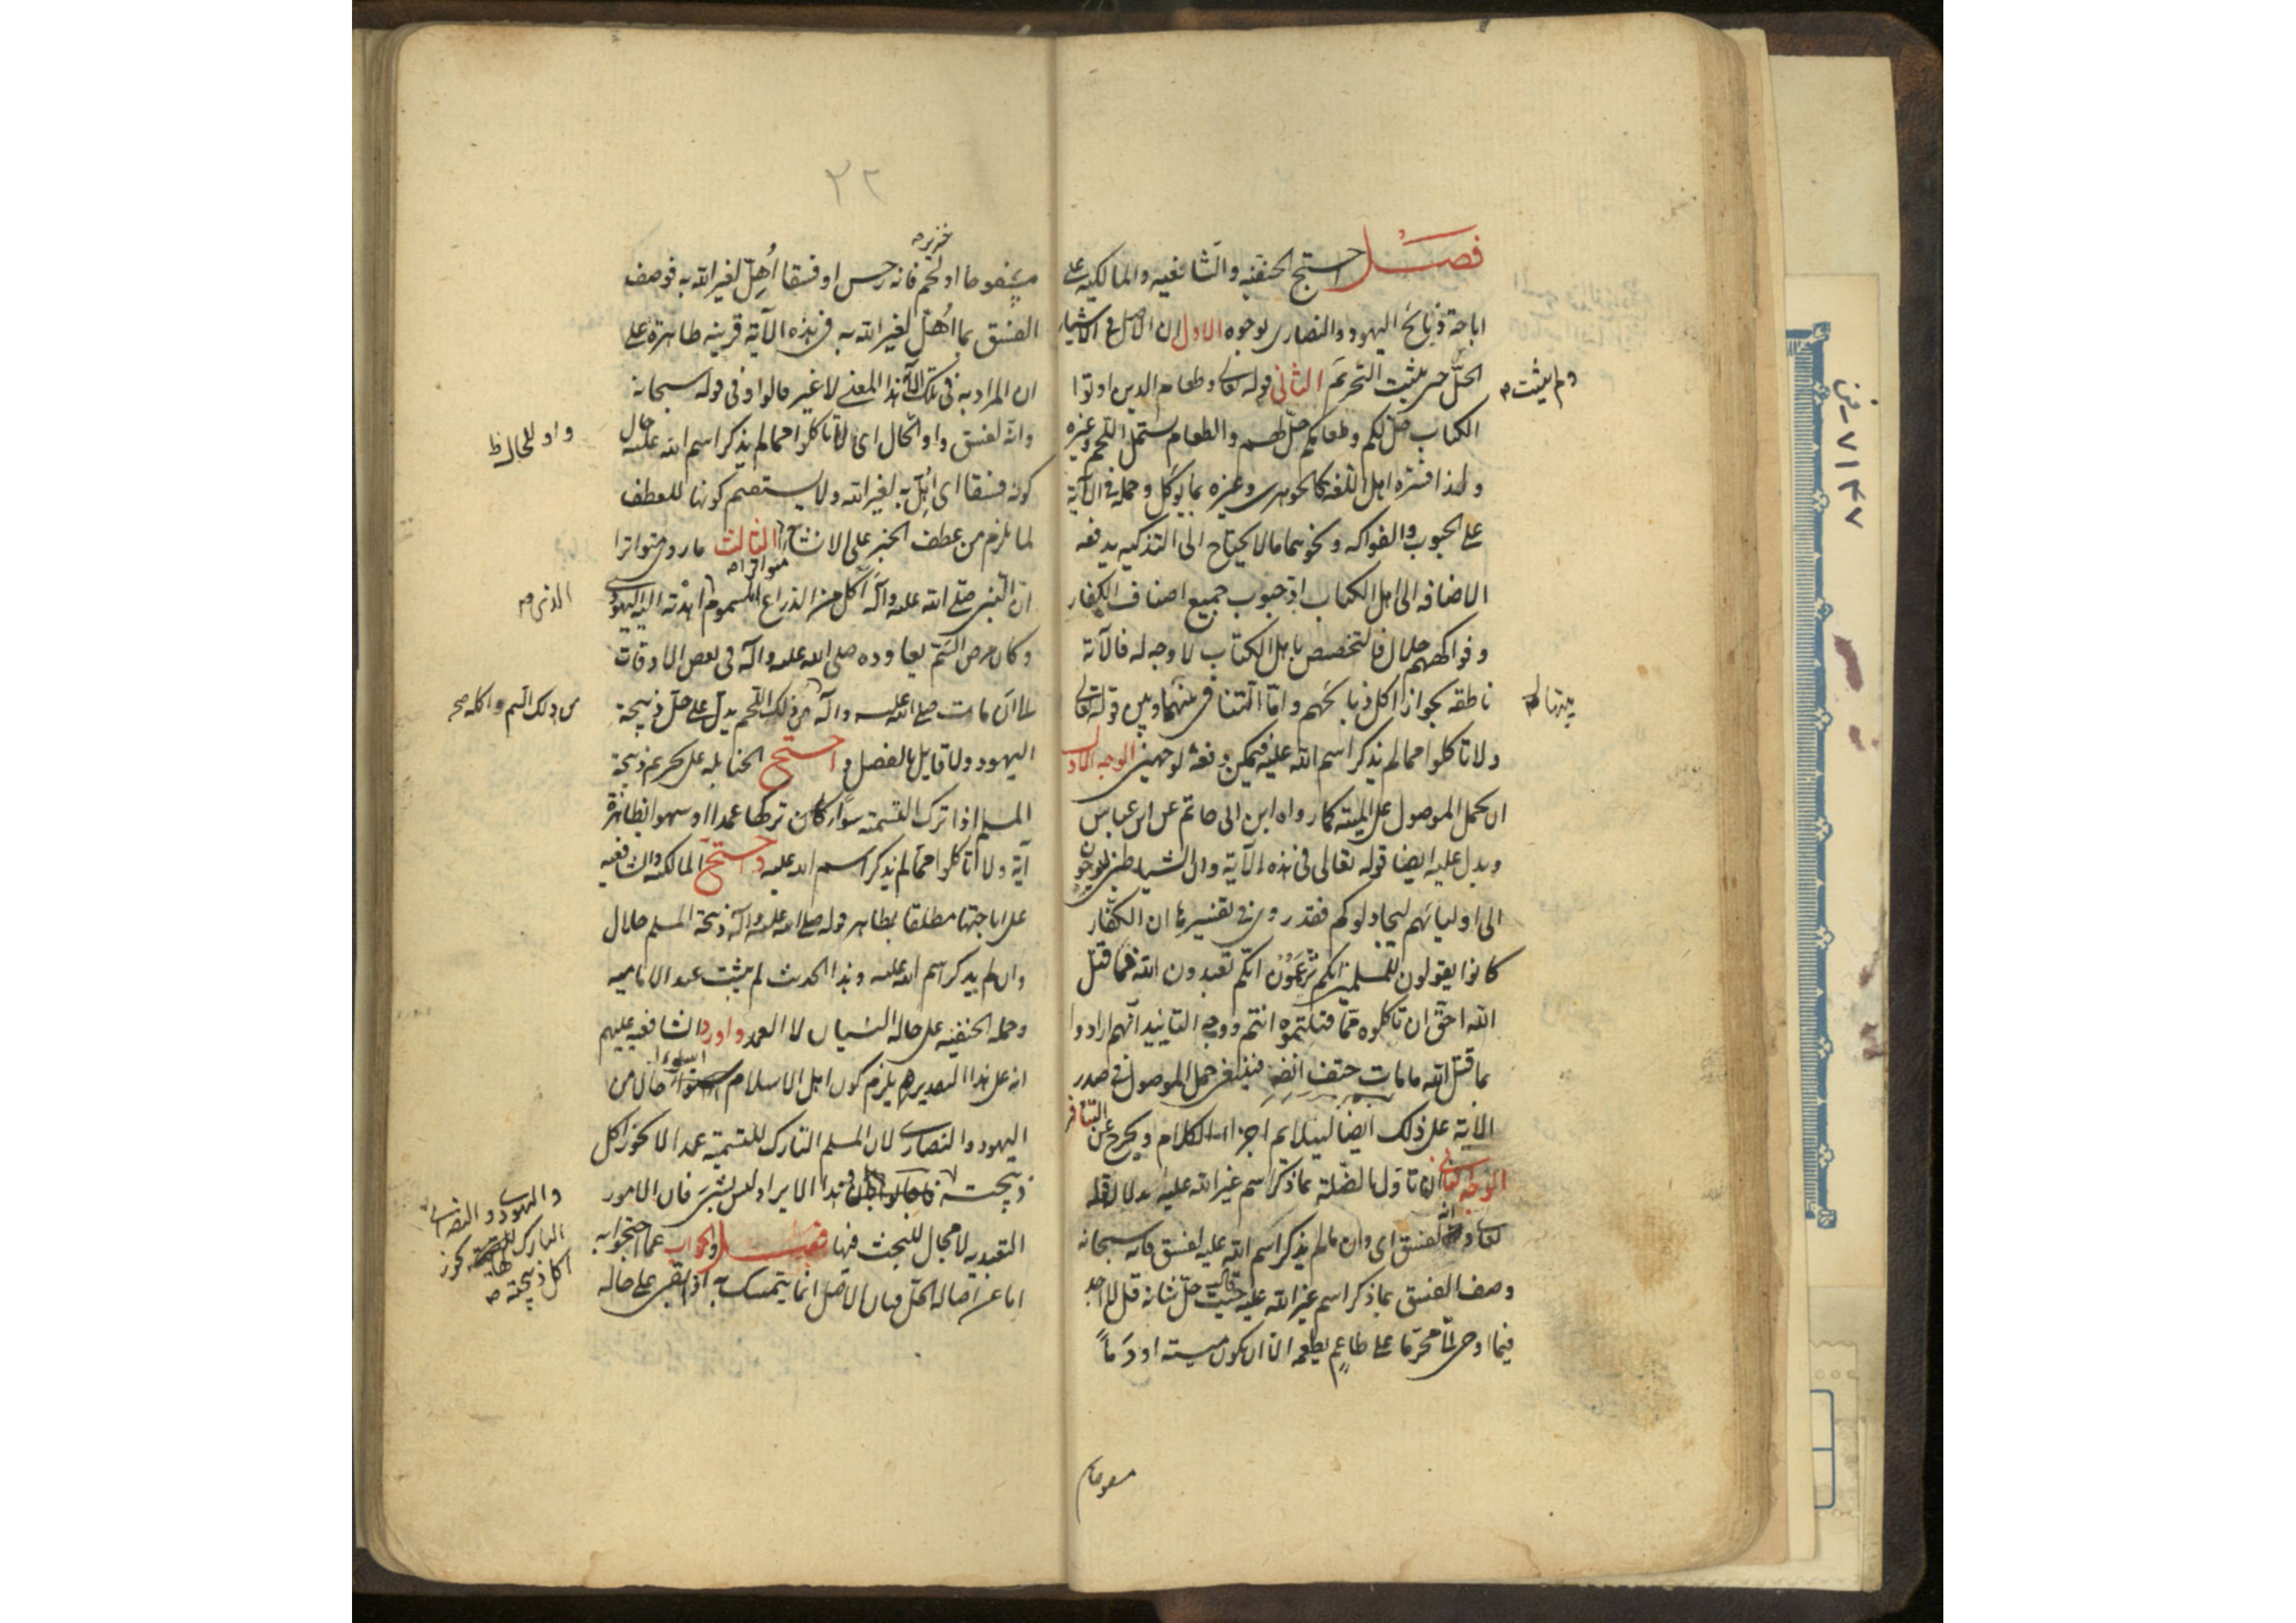 فصل احتج الحنفيه والشافعيه والمالكيه على
اباحة ذبايح اليهود والنصارى بوجوه الاول ان الاصل في الاشياء
الحل حتى يثبت التحريم الثاني قوله تعالى وطعام الذين اوتوا
ولم يثبت
الكتاب حل لكم وطعامكم حل لهم والطعام يشمل اللحم وغيره
ولهذا فسره اهل اللغه كالجوهرى وغيره بما يؤكل وحمله في الآية
على الحبوب والفواكه ونحوهما مما لا يحتاج الى التذكيه يدفعه
الاضافه الى اهل الكتاب اذ حبوب جميع اصناف الكفار
وفواكههم حلال فالتخصيص باهل الكتاب لا وجه له فالآية
ناطقه بجواز اكل ذبايحهم واما التنافى بينهما وبين قوله تعالى
ولا تاكلوا مما لم يذكر اسم الله عليه فيمكن دفعه لوجهين الوجه الاول
ان يحمل الموصول على الميته كما رواه ابن ابى حاتم عن ابن عباس
ويدل عليه ايضا قوله تعالى فى هذه الآية وان الشياطين ليوحون
الى اوليائهم ليجادلوكم فقد روى فى تفسيرها ان الكفار
كانوا يقولون للمسلمين انكم تزعمون انكم تعبدون الله فما قتل
الله احق ان تاكلوه مما قتلتموه انتم ووجه التاييد انهم ارادوا
بما قتل الله ما مات حتف انفه فينبغى حمل الموصول فى صدر
الاية على ذلك ايضا ليتلايم اجزاء الكلام ويخرج عن التنافر
الوجه الثانى ان تاول الصلة بما ذكر اسم غير الله عليه بدلالة قوله
تعالى وانه لفسق اى وان ما لم يذكر اسم الله عليه لفسق فانه سبحانه
وصف الفسق بما ذكر اسم غير الله عليه حيث قال جل شانه قل لا اجد
فيما اوحى الى محرما على طاعم يطعمه الا ان يكون ميتة او دما
مسفوحا
٢٢
خنزير
مسفوحا او لحم فانه رجس او فسقا أهل لغير الله به فوصف
الفسق بما اهل لغير الله به فى هذه الآية قرينه ظاهرة على
ان المراد به فى تلك الآية هذا المعنى لا غير قالوا وفى قوله سبحانه
وانه لفسق واو الحال اى لا تاكلوا مما لم يذكر اسم الله عليه حال
واو للحال ظ
كونه فسقا اى اهل به لغير الله ولا يستقيم كونها للعطف
لما يلزم من عطف الخبر على الانشاء الثالث ما روى متواترا
ان النبى صلى الله عليه وآله اكل من الذراع المسموم اهدته اليه اليهوديه
الذى
وكان مرض السم يعاوده صلى الله عليه وآله فى بعض الاوقات
الى ان مات صلى الله عليه وآله من ذلك اللحم يدل على حل ذبيحة
من ذلك السم واكله صح
اليهود ولا قايل بالفصل واحتج الحنابله على تحريم ذبيحة
المسلم اذا ترك التسمية سواء كان تركها عمدا او سهوا بظاهرة
آية ولا تاكلوا مما لم يذكر اسم الله عليه واحتج المالكيه والشافعيه
على اباحتها مطلقا بظاهر قوله صلى الله عليه وآله ذبيحة المسلم حلال
وان لم يذكر اسم الله عليه وهذا الحديث لم يثبت عند الاماميه
وحمله الحنفيه على حاله النسيان لا العمد واورد الشافعيه عليهم
انه على هذا التقدير يلزم كون اهل الاسلام اسوء حال من
اليهود والنصارى لان المسلم التارك للتسمية عمدا لا يجوز اكل
ذبيحته هذا الايراد ليس بشىء فان الامور
واليهود والنصارى
التارك يجوز
اكل ذبيحته
التعبديه لا مجال للبحث فيها فصل والجواب عما احتجوا به
اما عن اصاله الحل فبان الاصل انما يتمسك به اذا بقى على حاله
٧١٤٧